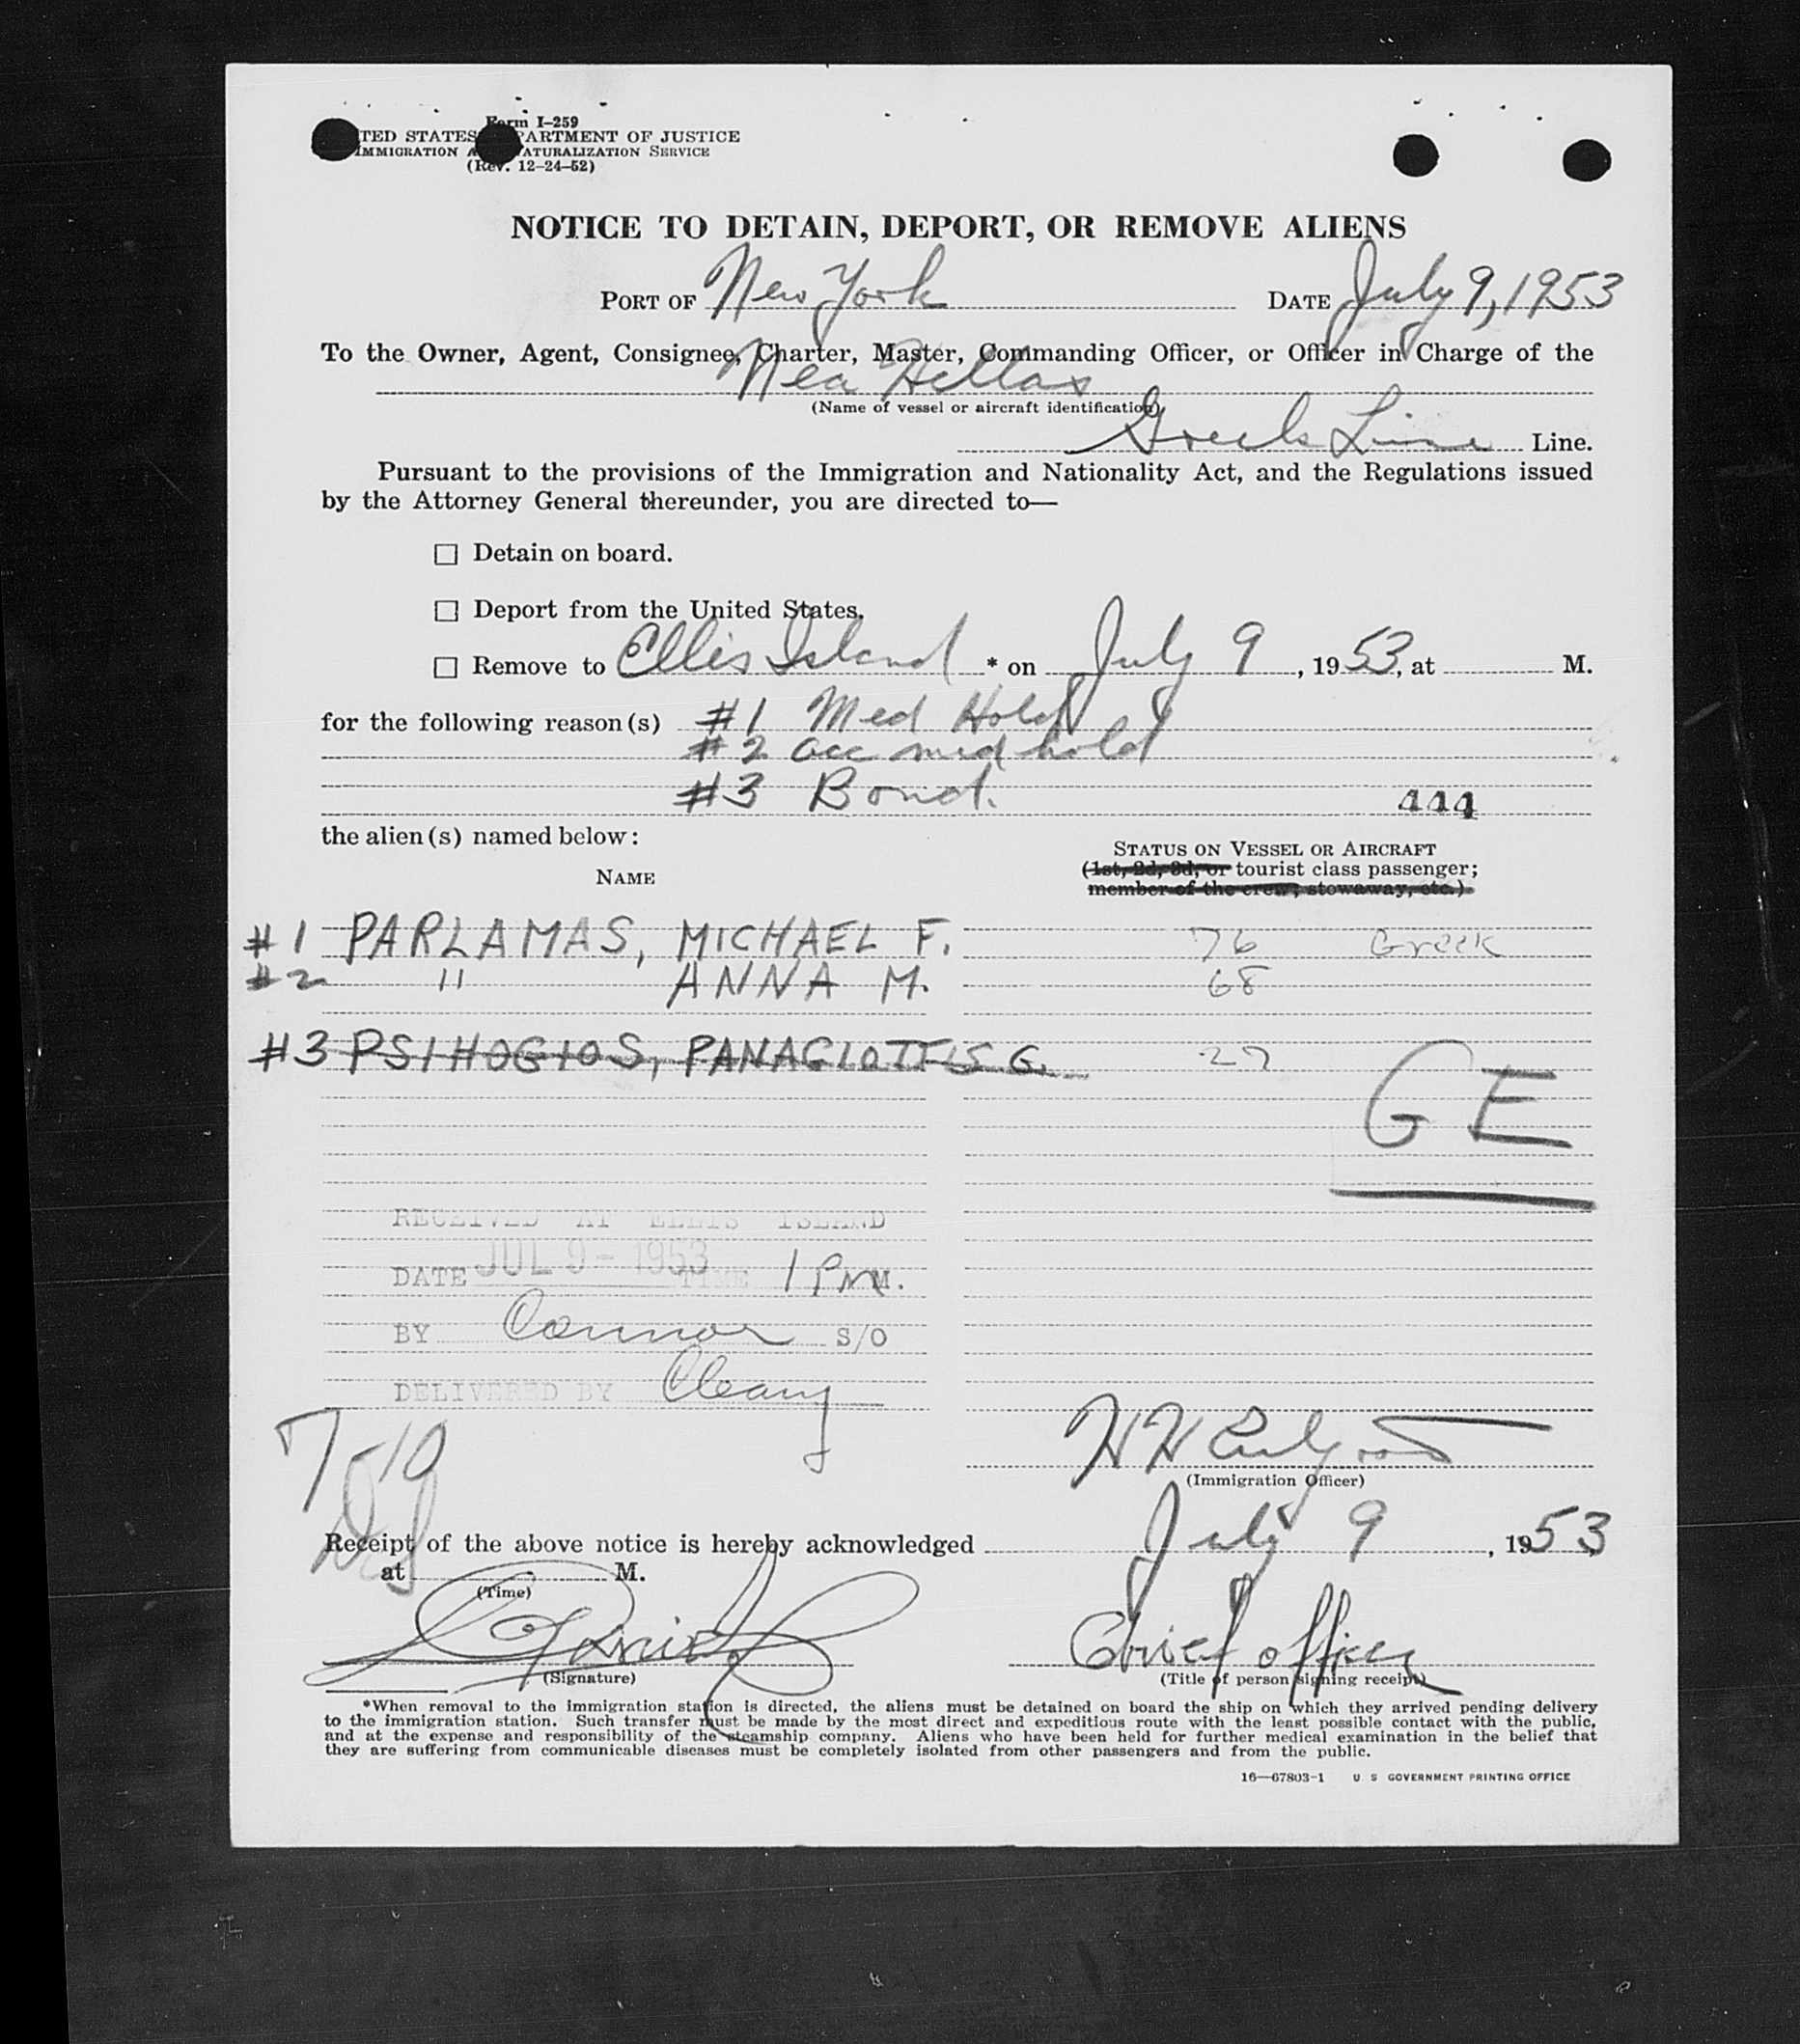 Form I-259
TED STATES PARTMENT OF JUSTICE
IMMIGRATION A ATURALIZATION SERVICE
(Rev. 12-24-52)
NOTICE TO DETAIN, DEPORT, OR REMOVE ALIENS
PORT OF New York DATE July 9, 1953
To the Owner, Agent, Consignee, Charter, Master, Commanding Officer, or Officer in Charge of the
Nea Hellas
(Name of vessel or aircraft identification)
Greek Line Line.
Pursuant to the provisions of the Immigration and Nationality Act, and the Regulations issued
by the Attorney General thereunder, you are directed to—
☐ Detain on board.
☐ Deport from the United States.
☐ Remove to Ellis Island * on July 9, 1953, at M.
for the following reason(s) #1 Med Hold
#2 acc med hold
#3 Bond.
444
the alien(s) named below:
STATUS ON VESSEL OR AIRCRAFT
NAME
(1st, 2d, 3d, or tourist class passenger;
member of the crew; stowaway, etc.)
#1 PARLAMAS, MICHAEL F. 76 Greek
#2 " ANNA M. 68
#3 PSIHOGIOS, PANAGIOTIS G. 27
GE
RECEIVED AT ELLIS ISLAND
DATE JUL 9 - 1953 TIME 1 PM M.
BY Connor S/O
DELIVERED BY Cleary
7-10
(Immigration Officer)
Receipt of the above notice is hereby acknowledged July 9, 1953
at M.
(Time)
Chief officer
(Signature) (Title of person signing receipt)
*When removal to the immigration station is directed, the aliens must be detained on board the ship on which they arrived pending delivery
to the immigration station. Such transfer must be made by the most direct and expeditious route with the least possible contact with the public,
and at the expense and responsibility of the steamship company. Aliens who have been held for further medical examination in the belief that
they are suffering from communicable diseases must be completely isolated from other passengers and from the public.
16—67803-1 U S GOVERNMENT PRINTING OFFICE